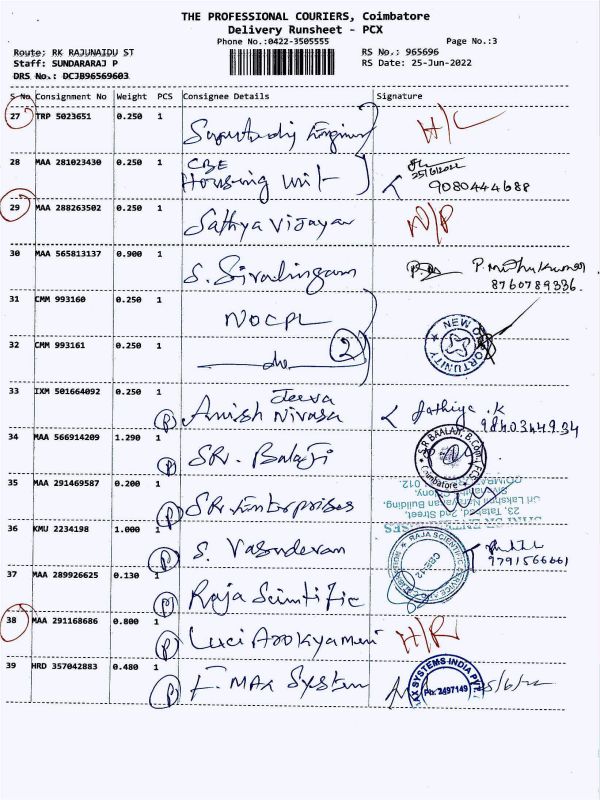 THE PROFESSIONAL COURIERS, Coimbatore
Delivery Runsheet - PCX
Phone No.:0422-3505555
Page No.:3
Route: RK RAJUNAIDU ST
RS No.: 965696
Staff: SUNDARARAJ P
RS Date: 25-Jun-2022
DRS No.: DCJB96569603
S No Consignment No Weight PCS Consignee Details Signature
27 TRP 5023651 0.250 1 H/L
28 MAA 281023430 0.250 1 CBE
Housing Unit 25/6/2022
9080444688
29 MAA 288263502 0.250 1 Sathya Vijayan N/P
30 MAA 565813137 0.900 1 S. Sivalingam P. Muthukumar
8760789336
31 CMM 993160 0.250 1 NOCPL
NEW OPPORTUNITY
32 CMM 993161 0.250 1 do 2
33 IXM 501664092 0.250 1 Jeeva
P Anish Nivasa Sathiya .K
9840344934
34 MAA 566914209 1.290 1 P SR. Balaji S.R BAALAJI, B.Com., FCS
Coimbatore
35 MAA 291469587 0.200 1 P SR Enterprises
23, Tatabad, 2nd Street,
Sri Lakshmi Narayana Building,
36 KMU 2234198 1.000 1 P S. Vasudevan RAJA SCIENTIFIC
CBE-12
9791566661
37 MAA 289926625 0.130 1 P Raja Scientific
38 MAA 291168686 0.800 1 P Luci Arokyameri H/R
39 HRD 357042883 0.480 1 P F. MAX System MAX SYSTEMS INDIA PVT
Ph: 2497149